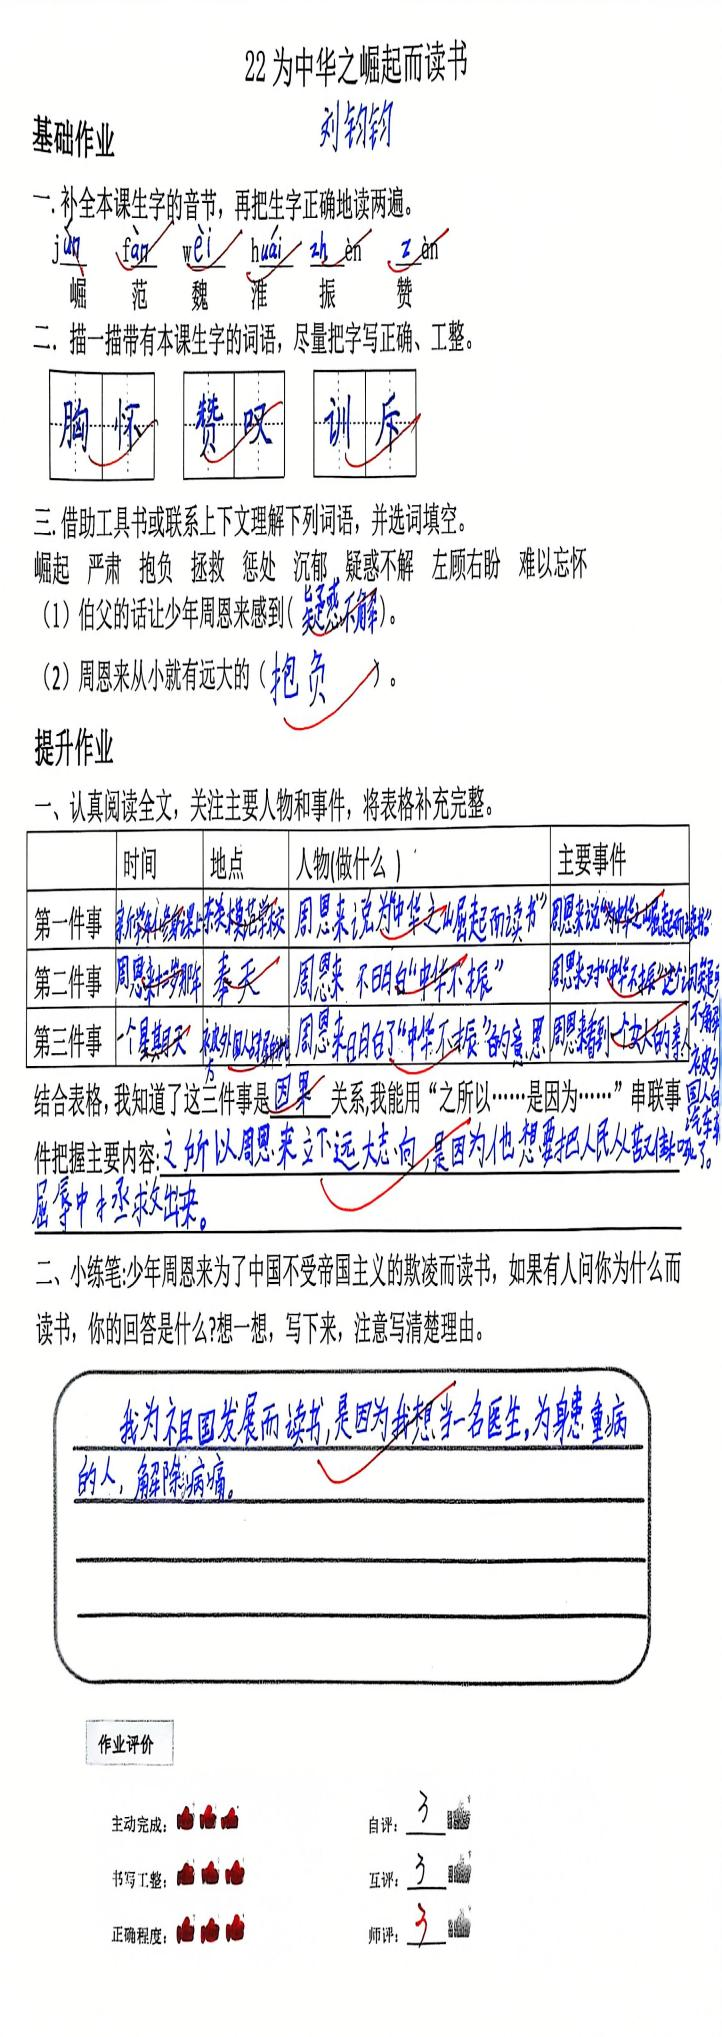 22 为中华之崛起而读书
刘钧钧
基础作业
一.补全本课生字的音节，再把生字正确地读两遍。
jún fàn wèi huái zhèn zàn
崛 范 魏 淮 振 赞
二．描一描带有本课生字的词语，尽量把字写正确、工整。
胸怀 赞叹 训斥
三.借助工具书或联系上下文理解下列词语，并选词填空。
崛起 严肃 抱负 拯救 惩处 沉郁 疑惑不解 左顾右盼 难以忘怀
（1）伯父的话让少年周恩来感到(疑惑不解)。
（2）周恩来从小就有远大的（抱负）。
提升作业
一、认真阅读全文，关注主要人物和事件，将表格补充完整。
时间 地点 人物(做什么 ) 主要事件
第一件事 新学年修身课上 东关模范学校 周恩来说为“中华之崛起而读书” 周恩来说“为中华之崛起而读书。”
第二件事 周恩来十二岁那年 奉天 周恩来不明白“中华不振” 周恩来对“中华不振”这个词疑惑不解
第三件事 一个星期天 周恩来明白了“中华不振”的意思 周恩来看到一个女人的亲人被外国人的汽车轧死了。
结合表格,我知道了这三件事是因果关系,我能用“之所以······是因为······”串联事
件把握主要内容:之所以周恩来立下远大志向,是因为他想要把人民从苦难和
屈辱中拯救出来。
二、小练笔:少年周恩来为了中国不受帝国主义的欺凌而读书，如果有人问你为什么而
读书，你的回答是什么?想一想，写下来，注意写清楚理由。
我为祖国发展而读书,是因为我想当一名医生,为身患重病
的人，解除病痛。
作业评价
主动完成： 自评：3
书写工整： 互评：3
正确程度： 师评：3